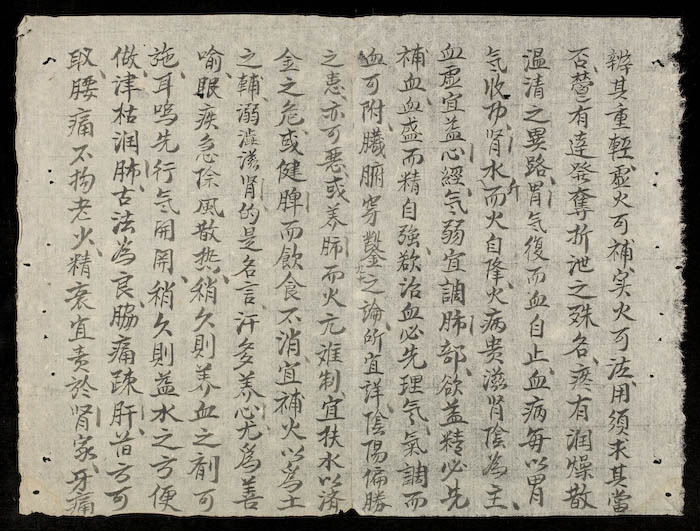 辨其重輕虛火可補实火可法用須求其當
否蔘有達發奪折泄之殊名痰有润燥散
温清之異路胃气復而血自止血病每以胃
气收功肾水升而火自降火病贵滋肾陰為主
血虛宜益心經气弱宜調肺部欲益精必先
補血血盛而精自強欲治血必先理气氣調而
血可附臓腑穿鑿之論所宜詳陰陽偏勝
之患亦可惡或养肺而火亢难制宜扶水以済
金之危或健脾而飲食不消宜補火以為土
之輔溺澁滋肾的是名言汗多养心尤爲善
喻眼疾急除風散热稍久則养血之剤可
施耳鳴先行气開関稍久則益水之方便
做津枯润肺古法為良脇痛疎肝昔方可
取腰痛不拘老少精衰宜责於肾家牙痛